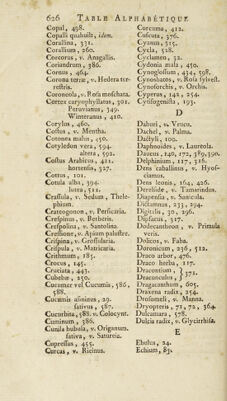 626 TABLE ALPHABÉTIQUE
Copal, 498.
Copalli quahuilt, idem.
Corallina, 331.
Corallium, 260.
Corcorus, v. Anagallis.
Coriandrum, 380.
Cornus, 464.
Corona terræ, v. Hedera ter-
restris.
Coroneola, v. Rosa moschata.
Cortex caryophyllatus, 301.
Peruvianus, 349.
Winteranus, 410.
Corylus, 460.
Costus, v. Mentha.
Cotonea malus, 450.
Cotyledon vera, 594.
altera, 592.
Costus Arabicus, 411.
hortensis, 327.
Cottus, 101.
Cotula alba, 394.
lutea, 511.
Crassula, v. Sedum, Thele-
phium.
Crateogonon, v. Persicaria.
Crespinus, v. Berberis.
Crespolina, v. Santolina.
Cresson, v. Apium palustre.
Crispina, v. Grossularia.
Crispula, v. Matricaria.
Crithmum, 185.
Crocus, 145.
Cruciata, 443.
Cubebæ, 250.
Cucumer vel Cucumis, 586,
588.
Cucumis asininus, 29.
sativus, 587.
Cucurbita, 588. v. Colocynt.
Cuminum, 386.
Cunila bubula, v. Origanum.
sativa, v. Satureia.
Cupressus, 455.
Curcas, v. Ricinus.
Corcuma, 412.
Cuscuta, 376.
Cyanus, 315.
Cycla, 518.
Cyclamen, 32.
Cydonia mala, 450.
Cynoglossum, 434, 598.
Cynosbatos, v. Rosa sylvest.
Cynosorchis, v. Orchis.
Cyperus, 142, 254.
Cytisogenista, 193.
D
Daburi, v. Urucu.
Dachel, v. Palma.
Dactyli, 100.
Daphnoides, v. Laureola.
Daucus, 140, 172, 389, 390.
Delphinium, 117, 516.
Dens caballinus, v. Hyos-
ciamus.
Dens leonis, 164, 426.
Derelside, v. Tamarindus.
Diapensia, v. Sanicula.
Dictamnus, 233, 294.
Digitalis, 30, 296.
Dipsacus, 317.
Dodecantheon, v. Primula
veris.
Dolicos, v. Faba.
Doronicum, 236, 512.
Draco arbor, 476.
Draco herba, 117.
Dracontium, } 371.
Dracunculus,
Dragacanthum, 605.
Draxena radix, 254.
Drosomeli, v. Manna.
Dryopteris, 71, 72, 364.
Dulcamara, 578.
Dulcis radix, v. Glycirrhisa.
E
Ebulus, 24.
Echium, 83.